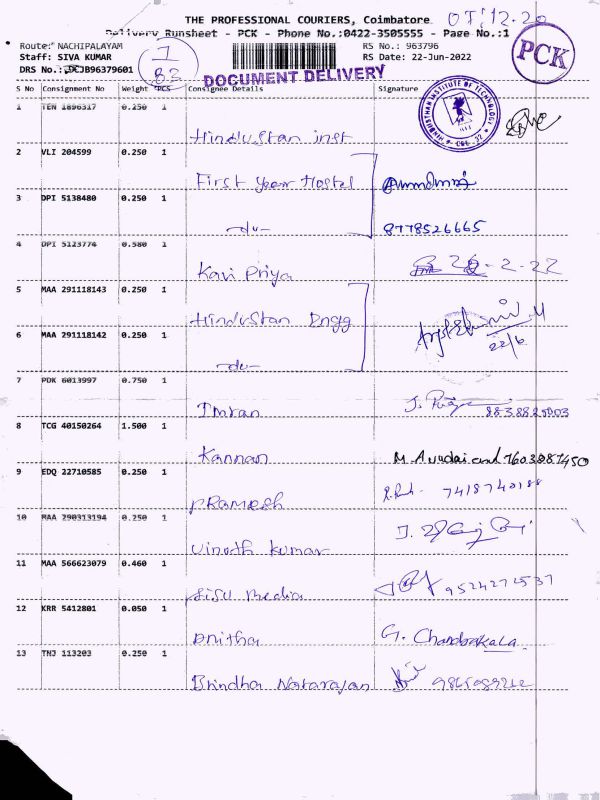 THE PROFESSIONAL COURIERS, Coimbatore 07:12.20
Delivery Runsheet - PCK - Phone No.:0422-3505555 - Page No.:1
Route: NACHIPALAYAM RS No.: 963796
Staff: SIVA KUMAR RS Date: 22-Jun-2022
DRS No.: JB96379601
1
83
PCK
DOCUMENT DELIVERY
HINDUSTHAN INSTITUTE OF TECHNOLOGY
CBE - 32
S No Consignment No Weight PCS Consignee Details Signature
1 TEN 1896317 0.250 1
Hindustan inst
2 VLI 204599 0.250 1
First year Hostel
3 DPI 5138480 0.250 1
-do- 8778526665
4 DPI 5123774 0.580 1
Kavi Priya
5 MAA 291118143 0.250 1
Hindustan Engg
6 MAA 291118142 0.250 1
22/6
-do-
7 PDK 6013997 0.750 1
Imran
8 TCG 40150264 1.500 1
Kannan
9 EDQ 22710585 0.250 1
Pramesh
10 MAA 290313194 0.250 1
Vinoth kumar
11 MAA 566623079 0.460 1
Sisu media 9524272537
12 KRR 5412801 0.050 1
Anitha G. Chandrakala
13 TNJ 113203 0.250 1
Brindha Natarajan